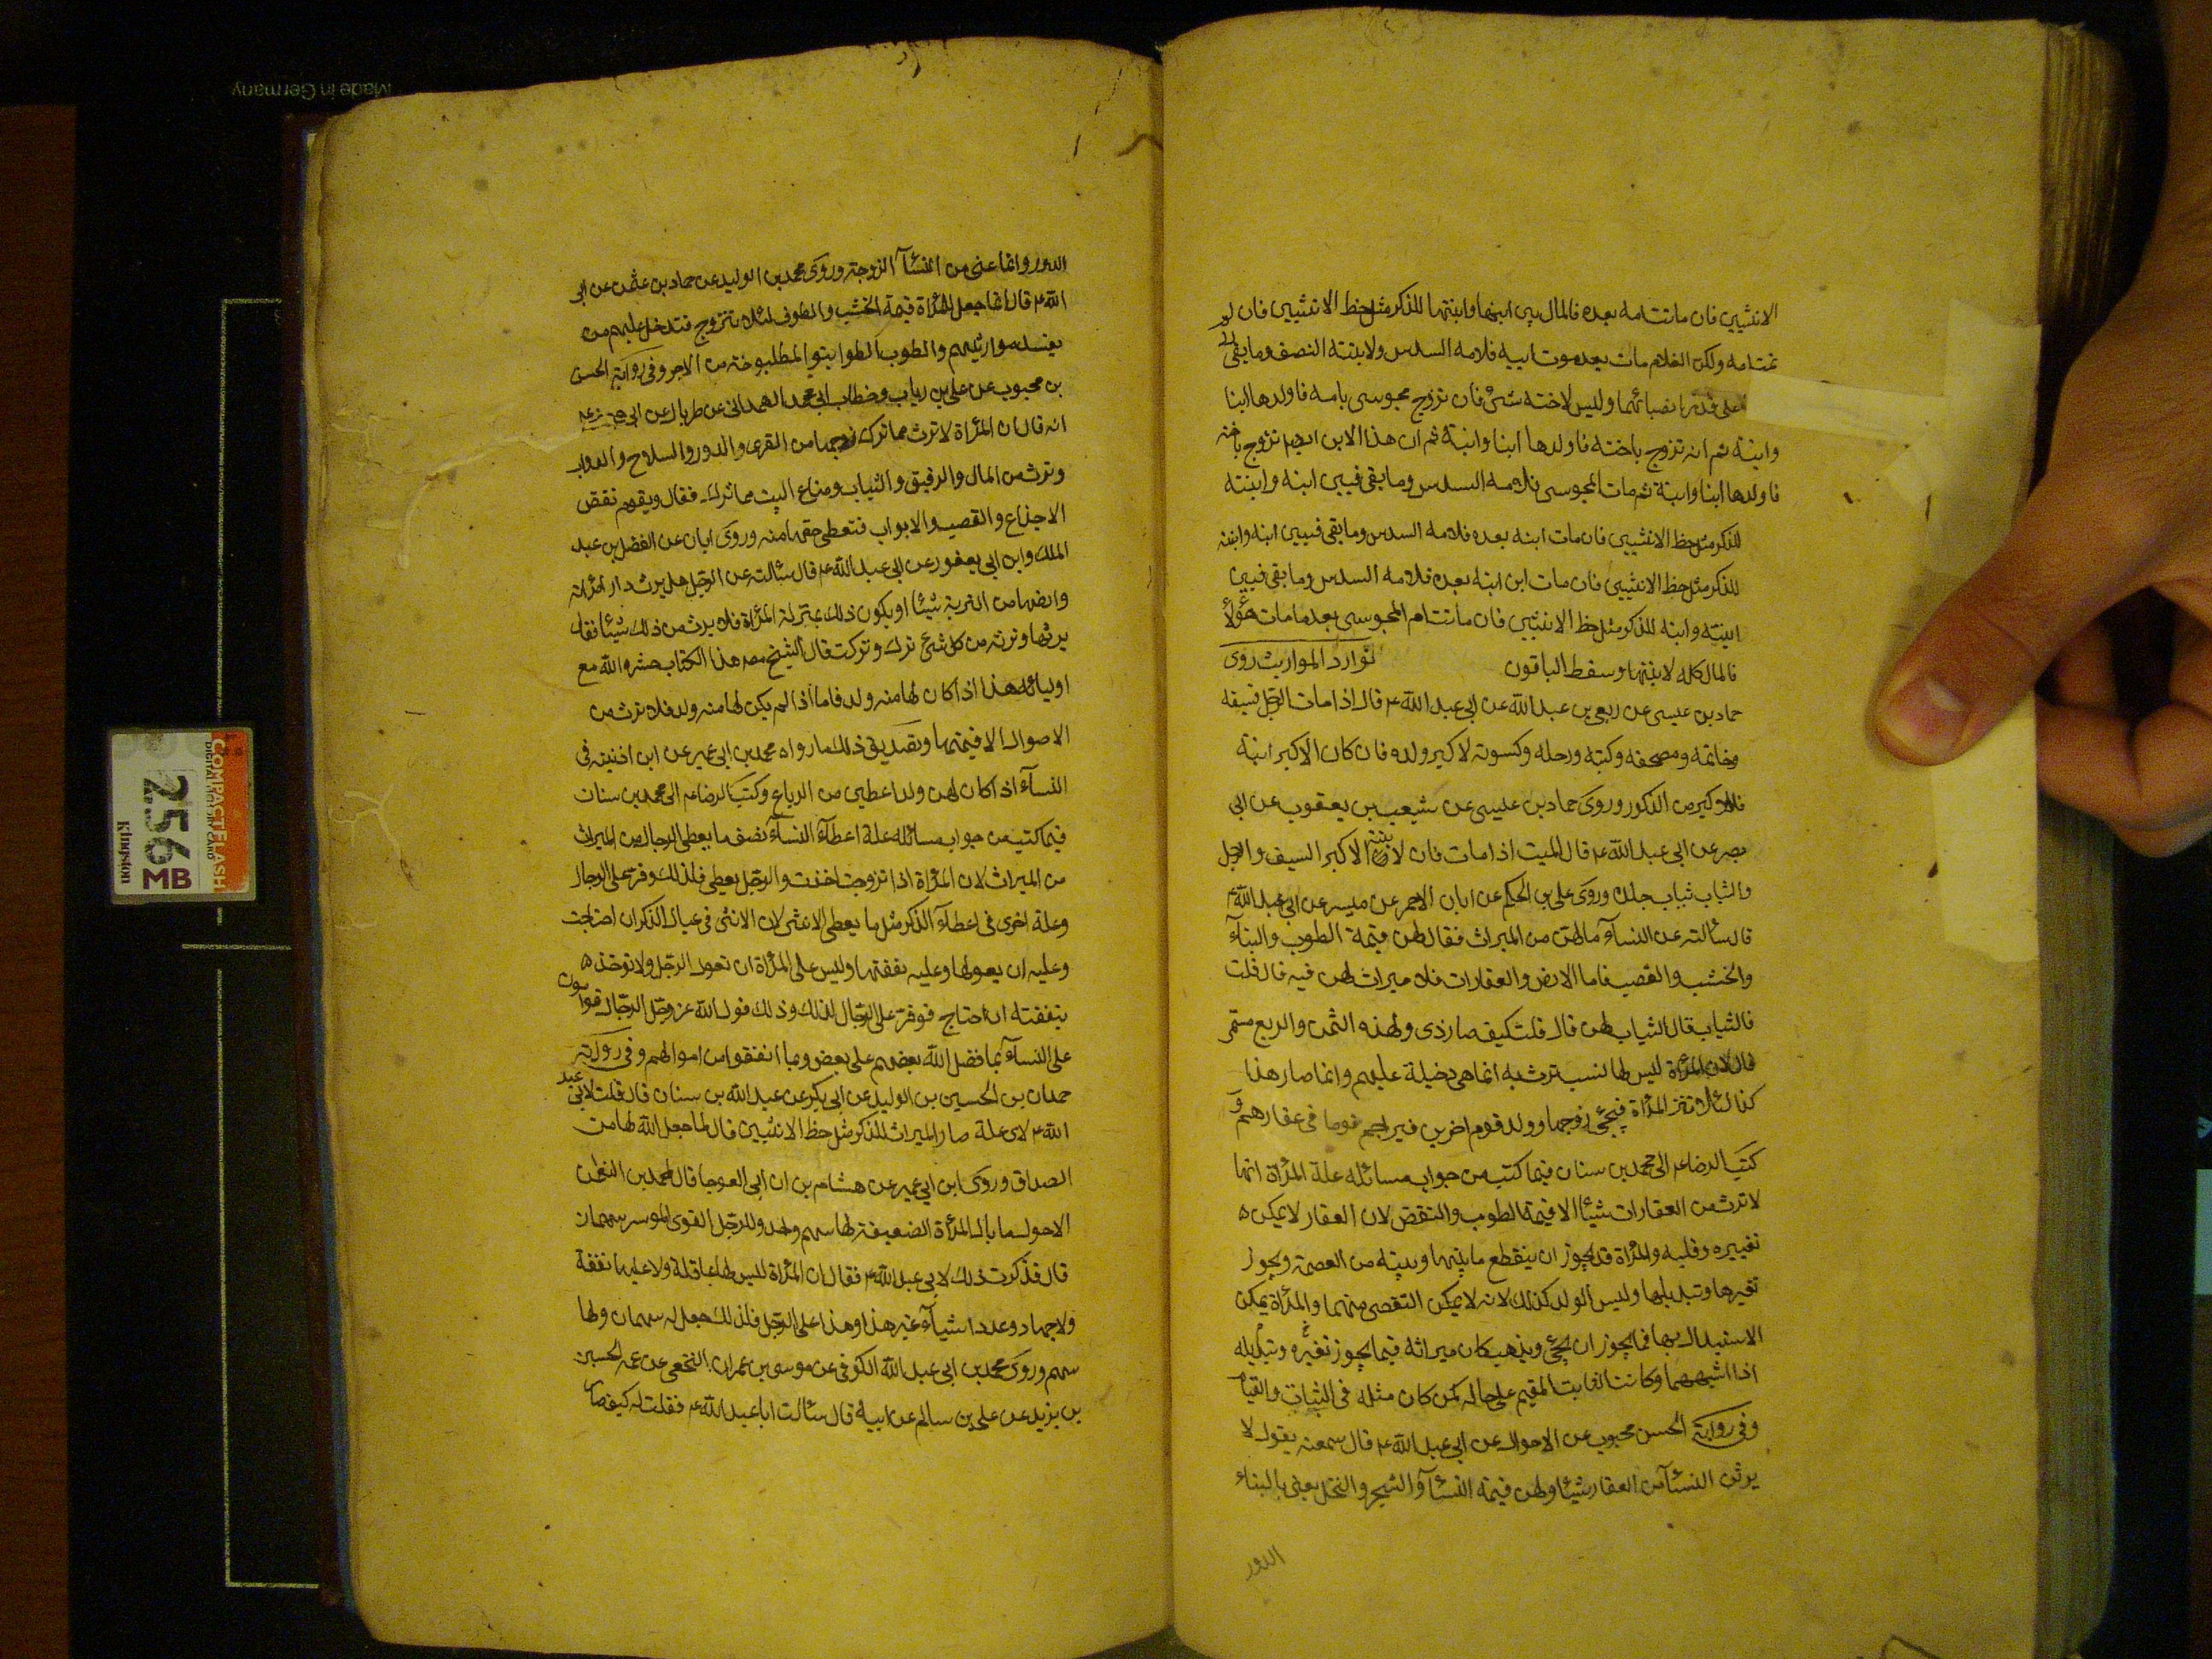 الانثيين فان ماتت امه بعده فالمال بين ابنها وابنتها للذكر مثل حظ الانثيين فان لم
تمت امه ولكن الغلام مات بعد موت ابيه فلامه السدس ولابنته النصف وما بقى رد
على قدر انصبائهما وليس لاخته شئ فان تزوج مجوسى بامه فاولدها ابنا
وابنة ثم انه تزوج باخته فاولدها ابنا وابنة ثم ان هذا الابن ايضا تزوج باخته
فاولدها ابنا وابنة ثم مات المجوسى فلامه السدس وما بقى فبين ابنه وابنته
للذكر مثل حظ الانثيين فان مات ابنه بعده فلامه السدس وما بقى فبين ابنه وابنته
للذكر مثل حظ الانثيين فان مات ابن ابنه بعده فلامه السدس وما بقى فبين
ابنته وابنه للذكر مثل حظ الانثيين فان ماتت ام المجوسى بعد ما مات هؤلا
فالمال كله لابنتها وسقط الباقون نوادر المواريث روى
حماد بن عيسى عن ربعى بن عبد الله عن ابى عبد الله ع قال اذا مات الرجل فسيفه
وخاتمه ومصحفه وكتبه ورحله وكسوته لاكبر ولده فان كان الاكبر ابنة
فللاكبر من الذكور وروى حماد بن عيسى عن شعيب بن يعقوب عن ابى
بصير عن ابى عبد الله ع قال الميت اذا مات فان لابنه الاكبر السيف والرحل
والثياب ثياب جلده وروى على بن الحكم عن ابان الاحمر عن ميسر عن ابى عبد الله ع
قال سألته عن النسآء ما لهن من الميراث فقال لهن قيمة الطوب والبنآء
والخشب والقصب فاما الارض والعقارات فلا ميراث لهن فيه قال قلت
فالثياب قال الثياب لهن قال قلت كيف صار ذى ولهذه الثمن والربع مسمى
قال لان المرأة ليس لها نسب ترث به انما هى دخيلة عليهم وانما صار هذا
كذا لئلا تتزوج المرأة فيجئ زوجها وولد قوم اخرين فيزاحم قوما فى عقارهم و
كتب الرضا ع الى محمد بن سنان فيما كتب من جواب مسائله علة المرأة انها
لا ترث من العقارات شيئا الا قيمة الطوب والنقض لان العقار لا يمكن
تغييره وقلبه والمرأة قد يجوز ان ينقطع ما بينها وبينه من العصمة ويجوز
تغيرها وتبديلها وليس الولد كذلك لانه لا يمكن التفصى منهما والمرأة يمكن
الاستبدال بها فما يجوز ان يجئ ويذهب كان ميراثه فيما يجوز تغيره وتبديله
اذا اشبههما وكان الثابت المقيم على حاله كمن كان مثله فى الثبات والقيام
وفى رواية الحسن محبوب عن الاحول عن ابى عبد الله ع قال سمعته يقول لا
يرثن النسآ من العقار شيئا ولهن قيمة النسآ والشجر والنخل يعنى بالبناء
الدور
الدور وانما عنى من النسآ الزوجة وروى محمد بن الوليد عن حماد بن عثمن عن ابى
الله ع قال انما جعل للمرأة قيمة الخشب والطوب لئلا تتزوج فتدخل عليهم من
يفسد مواريثهم والطوب الطوابيق المطبوخة من الاجر وفى رواية الحسن
بن محبوب عن على بن رياب وخطاب ابى محمد الهمدانى عن طربال عن ابى جعفر ع
انه قال ان المرأة لا ترث مما ترك زوجها من القرى والدور والسلاح والدواب
وترث من المال والرقيق والثياب ومتاع البيت مما ترك فقال ويقوم نقض
الاجذاع والقصب والابواب فتعطى حقها منه وروى ابان عن الفضل بن عبد
الملك وابن ابى يعفور عن ابى عبد الله ع قال سألته عن الرجل هل يرث دار امرأته
وارضها من التربة شيئا او يكون ذلك بمنزلة المرأة فلا يرث من ذلك شيئا فقال
يرثها وترثه من كل شئ ترك وتركت قال الشيخ مصـ هذا الكتاب حشره الله مع
اوليائه هذا اذا كان لها منه ولد فاما اذا لم يكن لها منه ولد فلا ترث من
الاصوال الا قيمتها وتصديق ذلك ما رواه محمد بن ابى عمير عن ابن اذينة فى
النسآء اذا كان لهن ولد اعطين من الرباع وكتب الرضا ع الى محمد بن سنان
فيما كتب من جواب مسائله علة اعطآء النسآء نصف ما يعطى الرجال من الميراث
من الميراث لان المرأة اذا تزوجت اخذت والرجل يعطى فلذلك وفر على الرجال
وعلة اخرى فى اعطآء الذكر مثل ما يعطى الانثى لان الانثى فى عيال الذكر ان احتاجت
وعليه ان يعولها وعليه نفقتها وليس على المرأة ان تعول الرجل ولا توخذ
بنفقته ان احتاج فوفر على الرجال لذلك وذلك قول الله عز وجل الرجال قوامون
على النسآء بما فضل الله بعضهم على بعض وبما انفقوا من اموالهم وفى رواية
حمدان بن الحسين بن الوليد عن ابى بكير عن عبد الله بن سنان قال قلت لابى عبد
الله ع لاى علة صار الميراث للذكر مثل حظ الانثيين قال لما جعل الله لها من
الصداق وروى ابن ابى عمير عن هشام بن ان ابى العوجا قال لمحمد بن النعمن
الاحول ما بال المرأة الضعيفة لها سهم واحد وللرجل القوى الموسر سهمان
قال فذكرت ذلك لابى عبد الله ع فقال ان المرأة ليس لها عاقلة ولا عليها نفقة
ولا جهاد وعدد اشيآء غير هذا وهذا على الرجل فلذلك جعل له سهمان ولها
سهم وروى محمد بن ابى عبد الله الكوفى عن موسى بن عمران النخعى عن عمه الحسين
بن يزيد عن على بن سالم عن ابيه قال سألت ابا عبد الله ع فقلت له كيف صار
Made in Germany
COMPACTFLASH
256
MB
Kingston